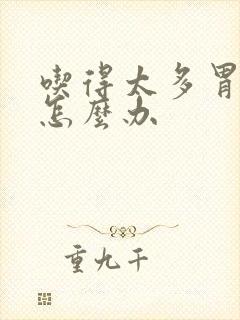 喫得太多胃
怎麼办
重九千